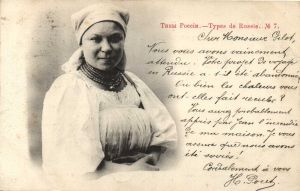 Типы Россіи. — Types de Russie. № 7.
Cher Monsieur
Vous vous avons vainement
attendu. Votre projet de voyage
en Russie a t'il été abandonné
Ou bien les chaleurs vous
ont-elles fait reculer?
Vous aurez probablement
appris par Jean l'incendie
de ma maison. Je vous
assure que nous avons
été
Cordialement à vous
H.